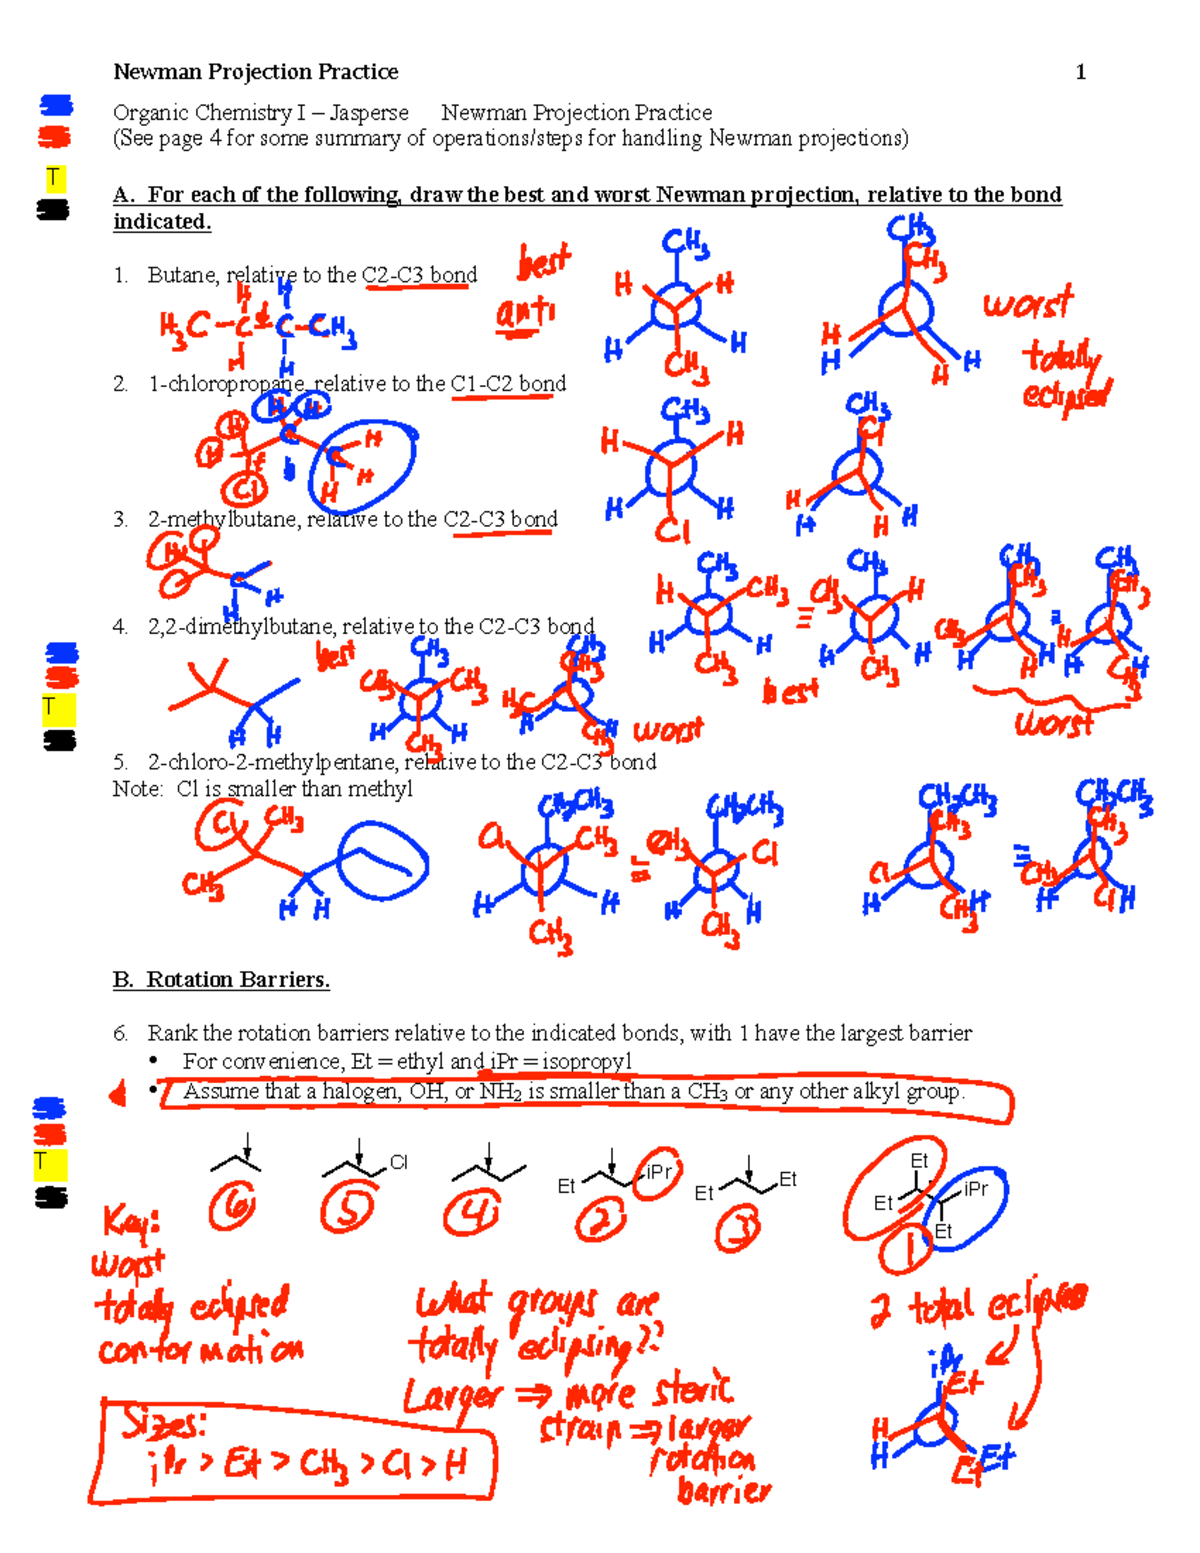 Newman Projection Practice 1
Organic Chemistry I – Jasperse Newman Projection Practice
(See page 4 for some summary of operations/steps for handling Newman projections)
T
A. For each of the following, draw the best and worst Newman projection, relative to the bond
indicated.
1. Butane, relative to the C2-C3 bond
best
anti
CH3
H H
H H
CH3
CH3
CH3
H
H
H
H
worst
totally
eclipsed
H H
H3C-C-C-CH3
H H
2. 1-chloropropane, relative to the C1-C2 bond
H H
H C
H C H
Cl H H
CH3
H H
H H
Cl
CH3
Cl
H
H
H
H
3. 2-methylbutane, relative to the C2-C3 bond
H
C
H H
CH3
H CH3
H H
CH3
=
CH3
CH3 H
H H
CH3
best
CH3
CH3
CH3
H H H
=
CH3
CH3
H
H CH3 H
worst
4. 2,2-dimethylbutane, relative to the C2-C3 bond
T
H H
best
CH3
CH3 CH3
H H
CH3
CH3
CH3
H3C
H
CH3 H
worst
5. 2-chloro-2-methylpentane, relative to the C2-C3 bond
Note: Cl is smaller than methyl
Cl CH3
CH3
H H
CH2CH3
Cl CH3
H H
CH3
=
CH2CH3
CH3 Cl
H H
CH3
CH2CH3
CH3
Cl
H CH3 H
≡
CH2CH3
CH3
CH3
H Cl H
B. Rotation Barriers.
6. Rank the rotation barriers relative to the indicated bonds, with 1 have the largest barrier
• For convenience, Et = ethyl and iPr = isopropyl
• Assume that a halogen, OH, or NH2 is smaller than a CH3 or any other alkyl group.
T
Cl
Et iPr
Et Et
Et
Et iPr
Et
6 5 4 2 3 1
Key:
worst
totally eclipsed
conformation
What groups are
totally eclipsing??
Larger ⇒ more steric
strain ⇒ larger
rotation
barrier
2 total eclipses
iPr
Et
H
H
Et Et
Sizes:
iPr > Et > CH3 > Cl > H